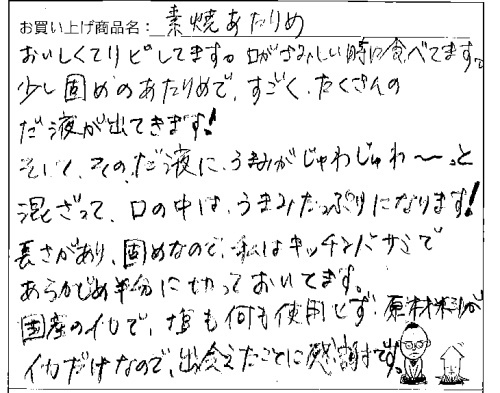 お買い上げ商品名：素焼あたりめ
おいしくてリピしてます。口がさみしい時に食べてます。
少し固めのあたりめで、すごく、たくさんの
だ液が出てきます!
そして、その、だ液に、うまみがじゅわじゅわ〜っと
混ざって、口の中は、うまみたっぷりになります!
長さがあり、固めなので、私はキッチンバサミで
あらかじめ半分に切っておいてます。
国産のイカで、塩も何も使用せず、原材料が
イカだけなので、出会えたことに感謝です。